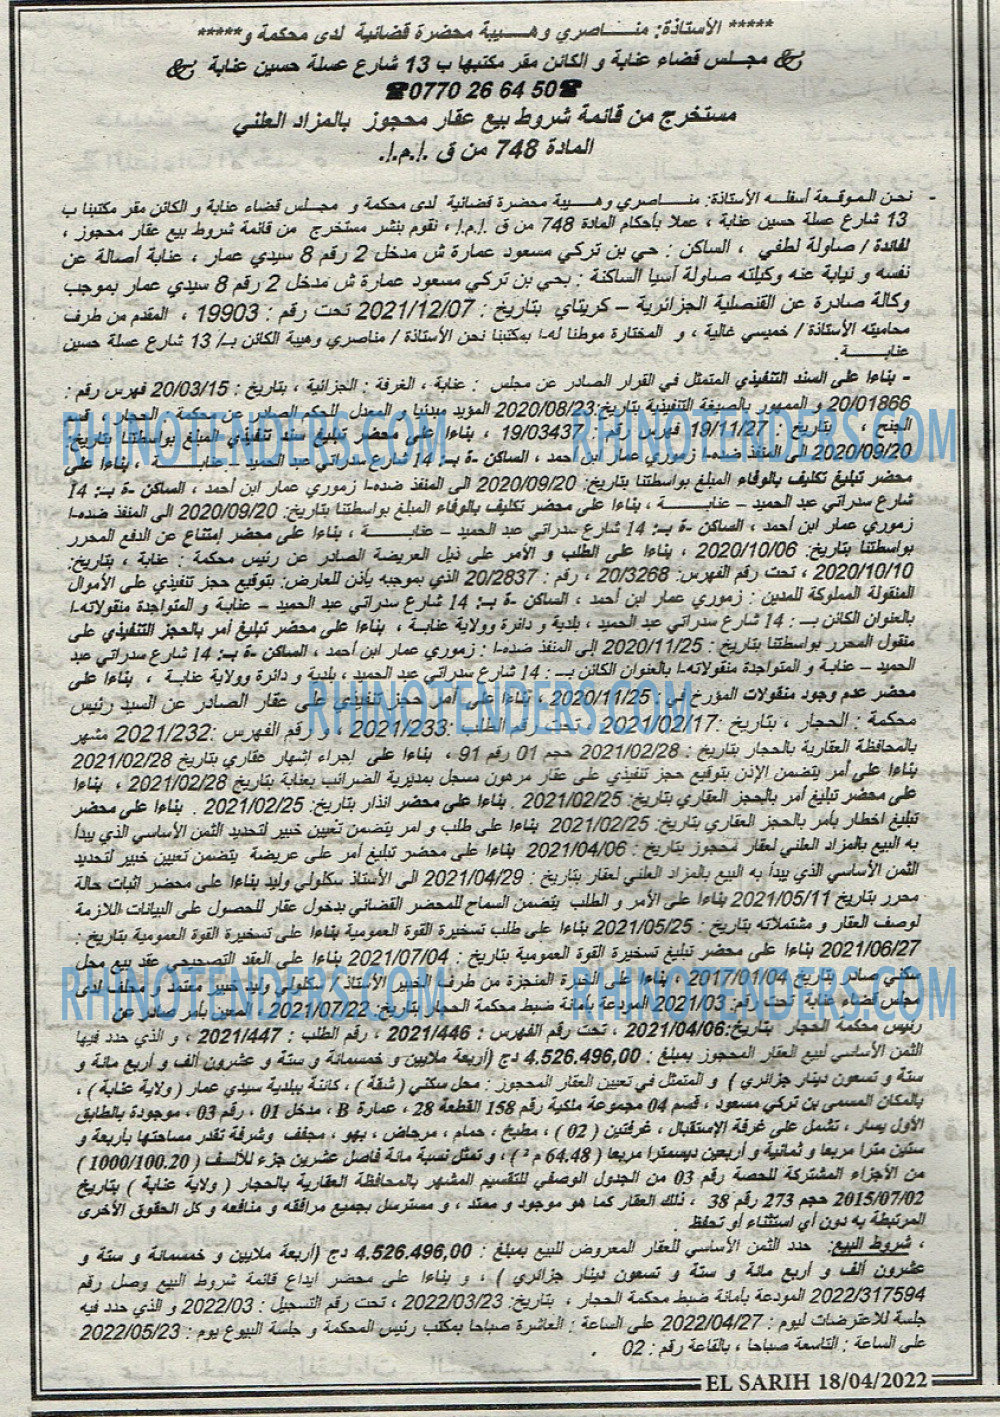 ***** الأستاذة: منــاصري وهـــيبة محضرة قضائية لدى محكمة و*****
مجـلس قضاء عنابة و الكائن مقر مكتبها ب 13 شارع عسلة حسين عنابة
☎0770 26 64 50☎
مستخرج من قائمة شروط بيع عقار محجوز بالمزاد العلني
المادة 748 من ق .إ.م.إ.
- نحن الموقعة أسفله الأستاذة: منـاصري وهـيبة محضرة قضائية لدى محكمة و مجـلس قضاء عنابة و الكائن مقر مكتبنا ب
13 شارع عسلة حسين عنابة ، عملا بأحكام المادة 748 من ق .إ.م.إ ، نقوم بنشر مستخرج من قائمة شروط بيع عقار محجوز ،
لفائدة / صاولة لطفي ، الساكن : حي بن تركي مسعود عمارة ش مدخل 2 رقم 8 سيدي عمار ، عنابة أصالة عن
نفسه و نيابة عنه وكيلته صاولة آسيا الساكنة : بحي بن تركي مسعود عمارة ش مدخل 2 رقم 8 سيدي عمار بموجب
وكالة صادرة عن القنصلية الجزائرية – كريتاي بتاريخ : 2021/12/07 تحت رقم : 19903 ، المقدم من طرف
محاميته الأستاذة / خميسي غالية ، و المختارة موطنا له.ا بمكتبنا نحن الأستاذة / مناصري وهيبة الكائن بـ/ 13 شارع عسلة حسين
عنابـــة.
- بناءا على السند التنفيذي المتمثل في القرار الصادر عن مجلس : عنابة ، الغرفة : الجزائية ، بتاريخ : 20/03/15 فهرس رقم :
20/01866 و الممهور بالصيغة التنفيذية بتاريخ:2020/08/23 المؤيد مبدئيا و المعدل للحكم الصادر عن محكمة : الحجار ، قسم
الجنح ، بتاريخ : 19/11/27 فهرس رقم : 19/03437 ، بناءا على محضر تبليغ سند تنفيذي المبلغ بواسطتنا بتاريخ:
2020/09/20 الى المنفذ ضده.ا زموري عمار ابن أحمد ، الساكن .ة بـ: 14 شارع سدراتي عبد الحميد – عنابـــة ، بناءا على
محضر تبليغ تكليف بالوفاء المبلغ بواسطتنا بتاريخ: 2020/09/20 الى المنفذ ضده.ا زموري عمار ابن أحمد ، الساكن .ة بـ: 14
شارع سدراتي عبد الحميد – عنابـــة ، بناءا على محضر تكليف بالوفاء المبلغ بواسطتنا بتاريخ: 2020/09/20 الى المنفذ ضده.ا
زموري عمار ابن أحمد ، الساكن .ة بـ: 14 شارع سدراتي عبد الحميد – عنابـــة ، بناءا على محضر إمتناع عن الدفع المحرر
بواسطتنا بتاريخ: 2020/10/06 ، بناءا على الطلب و الأمر على ذيل العريضة الصادر عن رئيس محكمة : عنابة ، بتاريخ:
2020/10/10 ، تحت رقم الفهرس: 20/3268 ، رقم : 20/2837 الذي بموجبه يأذن للعارض: بتوقيع حجز تنفيذي على الأموال
المنقولة المملوكة للمدين : زموري عمار ابن أحمد ، الساكن .ة بـ: 14 شارع سدراتي عبد الحميد – عنابة و المتواجدة منقولاته.ا
بالعنوان الكائن بـ : 14 شارع سدراتي عبد الحميد ، بلدية و دائرة وولاية عنابـة ، بناءا على محضر تبليغ أمر بالحجز التنفيذي على
منقول المحرر بواسطتنا بتاريخ : 2020/11/25 إلى المنفذ ضده.ا : زموري عمار ابن أحمد ، الساكن .ة بـ: 14 شارع سدراتي عبد
الحميد – عنابة و المتواجدة منقولاته.ا بالعنوان الكائن بـ : 14 شارع سدراتي عبد الحميد ، بلدية و دائرة وولاية عنابة ، بناءا على
محضر عدم وجود منقولات المؤرخ في : 2020/11/25 ، بناءا على أمر حجز تنفيذي على عقار الصادر عن السيد رئيس
محكمة : الحجار ، بتاريخ :2021/02/17 ، تحت رقم الطلب :2021/233 ، و رقم الفهرس :2021/232 مشهر
بالمحافظة العقارية بالحجار بتاريخ : 2021/02/28 حجم 01 رقم 91 ، بناءا على إجراء إشهار عقاري بتاريخ 2021/02/28
بناءا على أمر يتضمن الإذن بتوقيع حجز تنفيذي على عقار مرهون مسجل بمديرية الضرائب بعنابة بتاريخ 2021/02/28 ، بناءا
على محضر تبليغ أمر بالحجز العقاري بتاريخ: 2021/02/25 . بناءا على محضر انذار بتاريخ: 2021/02/25 . بناءا على محضر
تبليغ اخطار بأمر بالحجز العقاري بتاريخ: 2021/02/25 بناءا على طلب و امر يتضمن تعيين خبير لتحديد الثمن الأساسي الذي يبدأ
به البيع بالمزاد العلني لعقار محجوز بتاريخ : 2021/04/06 بناءا على محضر تبليغ أمر على عريضة يتضمن تعيين خبير لتحديد
الثمن الأساسي الذي يبدأ به البيع بالمزاد العلني لعقار بتاريخ : 2021/04/29 الى الأستاذ سكلولي وليد بناءا على محضر اثبات حالة
محرر بتاريخ 2021/05/11 بناءا على الأمر و الطلب يتضمن السماح للمحضر القضائي بدخول عقار للحصول على البيانات اللازمة
لوصف العقار و مشتملاته بتاريخ : 2021/05/25 بناءا على طلب تسخيرة القوة العمومية بناءا على تسخيرة القوة العمومية بتاريخ :
2021/06/27 بناءا على محضر تبليغ تسخيرة القوة العمومية بتاريخ : 2021/07/04 بناءا على العقد التصحيحي عقد بيع محل
سكني صادر بتاريخ 2017/01/04 ، بناءا على الخبرة المنجزة من طرف الخبير الأستاذ/ سكلولي وليد خبير معتمد ، محلف لدى
مجلس قضاء عنابة تحت رقم: 2021/03 المودعة بأمانة ضبط محكمة الحجار بتاريخ: 2021/07/22 ، المعين بأمر صادر عن
رئيس محكمة الحجار بتاريخ:2021/04/06 ، تحت رقم الفهرس : 2021/446 ، رقم الطلب : 2021/447 ، و الذي حدد فيها
الثمن الأساسي لبيع العقار المحجوز بمبلغ : 4.526.496,00 دج (أربعة ملايين و خمسمائة و ستة و عشرون ألف و أربع مائة و
ستة و تسعون دينار جزائري ) و المتمثل في تعيين العقار المحجوز : محل سكني ( شقة ) ، كائنة ببلدية سيدي عمار ( ولاية عنابة ) ،
بالمكان المسمى بن تركي مسعود ، قسم 04 مجموعة ملكية رقم 158 القطعة 28 ، عمارة B ، مدخل 01 ، رقم 03 ، موجودة بالطابق
الأول يسار ، تشمل على غرفة الإستقبال ، غرفتين ( 02 ) ، مطبخ ، حمام ، مرحاض ، بهو ، مجفف وشرفة تقدر مساحتها بأربعة و
ستين مترا مربعا و ثمانية و أربعين ديسمترا مربعا ( 64.48 م ² ) ، و تمثل نسبة مائة فاصل عشرين جزء للألف ( 1000/100.20 )
من الأجزاء المشتركة للحصة رقم 03 من الجدول الوصفي للتقسيم المشهر بالمحافظة العقارية بالحجار ( ولاية عنابة ) بتاريخ
2015/07/02 حجم 273 رقم 38 ، ذلك العقار كما هو موجود و ممتد ، و مسترسل بجميع مرافقه و منافعه و كل الحقوق الأخرى
المرتبطة به دون أي استثناء أو تحفظ .
، شروط البيع: حدد الثمن الأساسي للعقار المعروض للبيع بمبلغ : 4.526.496,00 دج (أربعة ملايين و خمسمائة و ستة و
عشرون ألف و أربع مائة و ستة و تسعون دينار جزائري ) ، و بناءا على محضر ايداع قائمة شروط البيع وصل رقم
2022/317594 المودعة بأمانة ضبط محكمة الحجار ، بتاريخ: 2022/03/23 ، تحت رقم التسجيل : 2022/03 و الذي حدد فيه
جلسة للاعتراضات ليوم : 2022/04/27 على الساعة : العاشرة صباحا بمكتب رئيس المحكمة و جلسة البيوع يوم : 2022/05/23
على الساعة : التاسعة صباحا ، بالقاعة رقم : 02 .
EL SARIH 18/04/2022
RHINOTENDERS.COM RHINOTENDERS.COM
RHINOTENDERS.COM
RHINOTENDERS.COM RHINOTENDERS.COM